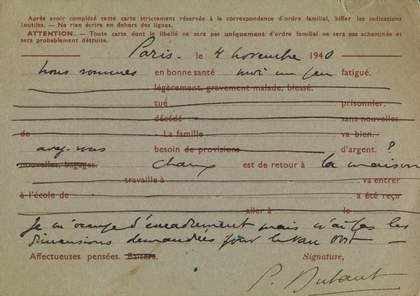 Après avoir complété cette carte strictement réservée à la correspondance d'ordre familial, biffer les indications
inutiles. — Ne rien écrire en dehors des lignes.
ATTENTION. — Toute carte dont le libellé ne sera pas uniquement d'ordre familial ne sera pas acheminée et
sera probablement détruite.
Paris. le 4 novembre 1940
nous sommes en bonne santé moi un peu fatigué.
légèrement, gravement malade, blessé.
tué prisonnier.
décédé sans nouvelles
de La famille va bien.
avez-vous besoin de provisions d'argent. ?
nouvelles, bagages. est de retour à la maison
travaille à va entrer
à l'école de a été reçu
aller à le
Je m'occupe d'encadrement mais n'ai pas les
dimensions demandées pour le
Affectueuses pensées. Baisers. Signature,
P.